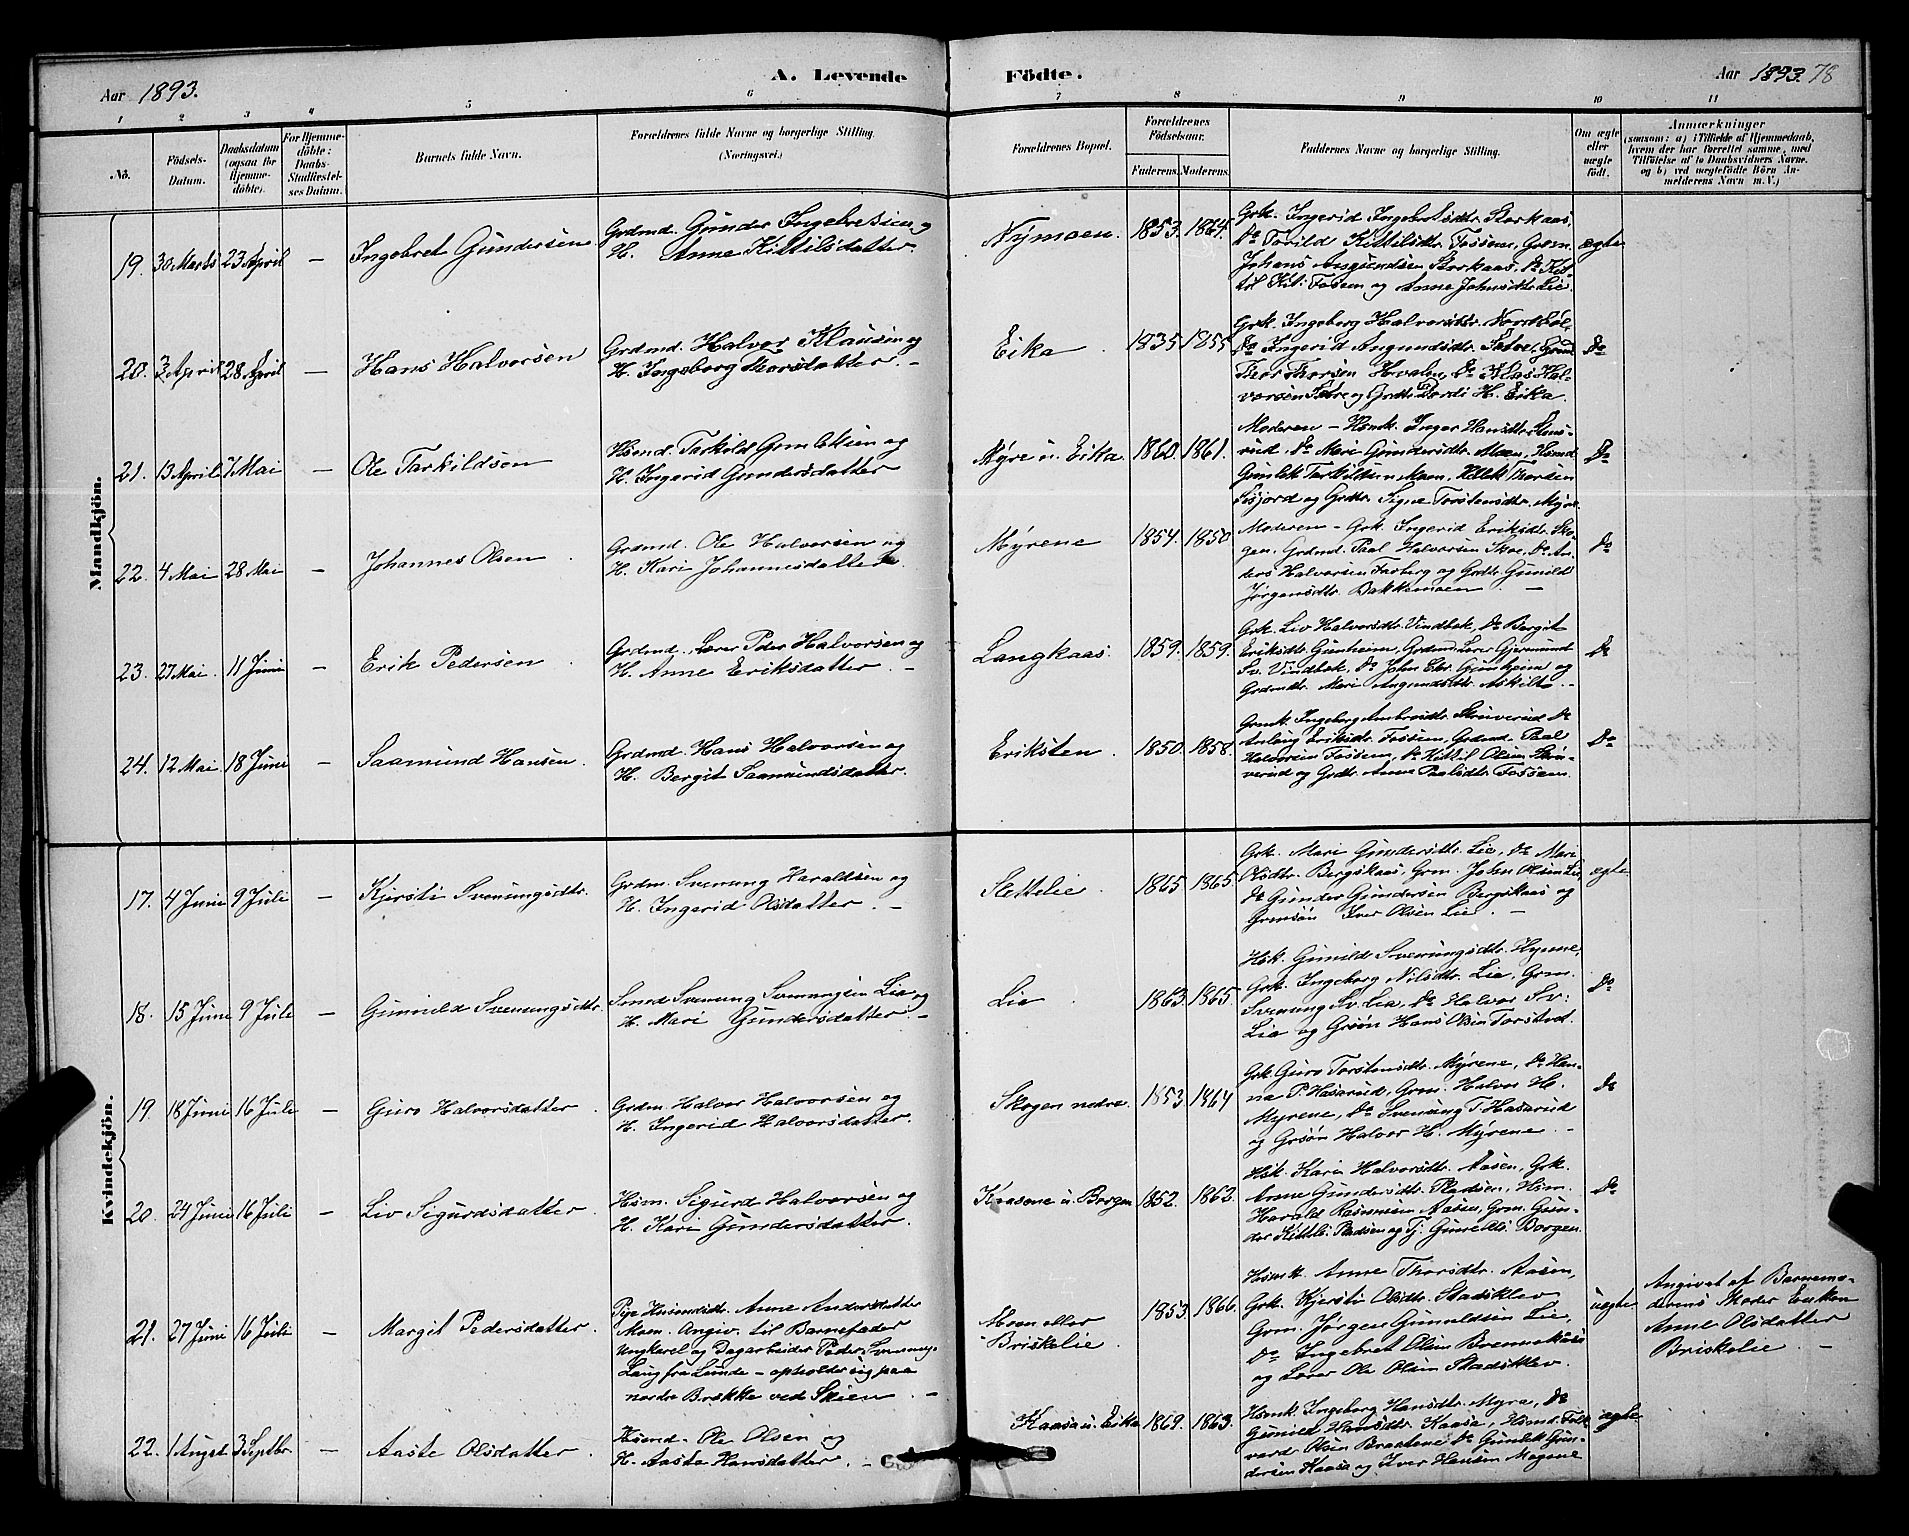 Aar 1893.
A. Levende
Födte.
Aar 1893. 78
1 2 3 4 5 6 7 8 9 10 11
No.
Födsels-
Datum.
Daabsdatum
(ogsaa for
Hjemme-
döbte).
For Hjemme-
döbte:
Daabs-
Stadfæstel-
ses Datum.
Barnets fulde Navn.
Forældrenes fulde Navne og borgerlige Stilling.
(Næringsvei.)
Forældrenes Bopæl.
Forældrenes
Födselsaar.
Faderens. Moderens.
Faddernes Navne og borgerlige Stilling.
Om ægte
eller
uægte
födt.
Anmærkninger
(saasom: a) i Tilfælde af Hjemmedaab,
hvem der har forrettet samme, med
Tilföielse af to Daabsvidners Navne,
og b) ved uægtefödte Börn An-
melderens Navn m. V.)
Mandkjön.
19. 30 Marts 23 April — Ingebret Gundersen
Grdmd. Gunder Ingebretsen og
H. Anne Kittilsdatter
Nymoen. 1853. 1864.
Grk. Ingerid Ingebretsdtr. Storkaas,
Do Torild Kittilsdtr. Fossem, Grm.
Johans Amundsen Storkaas, Do Kit-
til Kit: Fossem og Anne Johnsdtr Lie.
ægte
20. 3 April 28 April — Hans Halvorsen
Grdmd. Halvor Klausen og
H. Ingeborg Thorsdatter. —
Eika. 1835 1855
Grk. Ingeborg Halvorsdtr. Nordbøl,
Do Ingerid Amundsdtr. Sølve, Grmd
Thor Thorsen Hvalen, Do Klas Hal-
vorsen Sølve og Grdtr Dordi H. Eika.
Do
21. 13 April 7 Mai — Ole Tarkildsen
Hsmd. Tarkild Gunleksen og
H. Ingerid Gundersdatter
Myre u. Eika 1860. 1861.
Moderen — Hsmk. Inger Hansdtr. Stens-
rud, Do Mari Gundersdtr. Moen, Hsmd
Gunlek Tarkildsen Moen, Kittil Thorsen
og Grdtr. Signe Torstensdtr. Myre
Do
22. 4 Mai 28 Mai — Johannes Olsen
Grdmd. Ole Halvorsen og
H. Kari Johannesdatter.
Myrene 1854. 1850
Moderen — Grk. Ingerid Eriksdtr. Sko-
gen, Grdmd. Paal Halvorsen Skoe, Do An-
ders Halvorsen Farberg og Grdtr. Gunild
Jørgensdtr. Bakkemoen. —
Do
23. 27 Mai. 11 Juni — Erik Pedersen
Grdmd. Lærer Peder Halvorsen og
H. Anne Eriksdatter. —
Langkaas. 1859. 1859.
Grk. Liv Halvorsdtr. Vindbæk, Do Bergit
Eriksdtr. Gunheim, Grdmd. Lærer Gjermund
Sv. Vindbæk, Do John Chr. Gunheim og
Grdmdtr. Mari Amundsdtr. Askilt. —
Do
24. 12 Mai 18 Juni — Saamund Hansen
Grdmd. Hans Halvorsen og
H. Bergit Saamundsdatter.
Eriksten. 1850. 1858.
Grmk. Ingeborg Ambrosdtr. Skruverud Do
Aslaug Eriksdtr. Fossem, Grdmd. Paal
Halvorsen Fossem, Do Kittil Olsen Skru-
verud og Grdtr. Anne Paalsdtr. Fossem.
Do
Kvindekjön.
17. 4 Juni 9 Juli — Kjersti Svenungsdtr.
Grdm. Svenung Haraldsen og
H. Ingerid Olsdatter. —
Settelie. 1865 1865
Grk. Mari Gundersdtr. Lie, Do Mari
Olsdtr. Bergskaas, Grm. John Olsen Lie
Do Gunder Gundersen Bergskaas og
Grmsön Iver Olsen Lie. —
ægte
18. 15 Juni 9 Juli — Gunild Svenungsdtr.
Smed Svenung Svenungsen Lia og
H. Mari Gundersdatter. —
Lia 1863. 1865.
Hsk. Gunild Svenungsdtr. Hynne,
Grk. Ingeborg Nilsdtr. Lie, Grm.
Svenung Sv. Lia, Do Halvor Sv:
Lia og Grsön Hans Olsen Torstvet.
Do
19. 18 Juni 16 Juli — Guro Halvorsdatter.
Grdm. Halvor Halvorsen og
H. Ingerid Halvorsdatter.
Skogen nedre. 1853 1864
Grk. Guro Torstensdtr. Myrene, Do Han-
na P. Haserud, Grm. Halvor H.
Myrene, Do Svenung T. Haserud
og Grsön Halvor H. Myrene. —
Do
20. 24 Juni 16 Juli — Liv Sigurdsdatter.
Hsm. Sigurd Halvorsen og
H. Kari Gundersdatter.
Kaasene u. Borgen 1852. 1863.
Hsk. Karin Halvorsdtr. Aasen, Grk.
Anne Gundersdtr. Pladsen, Hsm.
Harald Rasmusen Aasen, Grm. Gun-
der Kittils. Pladsen og Tj. Gunre Ols. Borgen.
Do
21. 27 Juni 16 Juli — Margit Pedersdatter.
Pige Husmdsdtr. Anne Andersdatter
Moen. Angiv. til Barnefader
Ungkarl og Dagarbeider Peder Svenungs.
Laug fra Lunde — opholder sig paa
nordre Brekke ved Skien. —
Moen eller
Briskelie. 1853 1866.
Hsmk. Anne Thorsdtr. Aasen,
Grk. Kjersti Olsdtr. Stadsklev
Grm. Jørgen Gunuldsen Lie,
Do Ingebret Olsen Brennekaas
og Lærer Ole Olsen Stadsklev.
uægte
Angivet af Barnemo-
derens Moder Enken
Anne Olsdatter
Briskelie. —
22. 1 August 3 Septbr. — Aaste Olsdatter.
Hsmd. Ole Olsen og
H. Aaste Hansdatter. —
Kaasa u. Eika 1869. 1863.
Hsmk. Ingeborg Hansdtr. Myra, Do
Gunild Hansdtr. Kaasa, Hsmd. Folk-
vard Olsen Braatene, Do Gunlek Gun-
dersen Kaasa og Iver Hansen Mogene
ægte